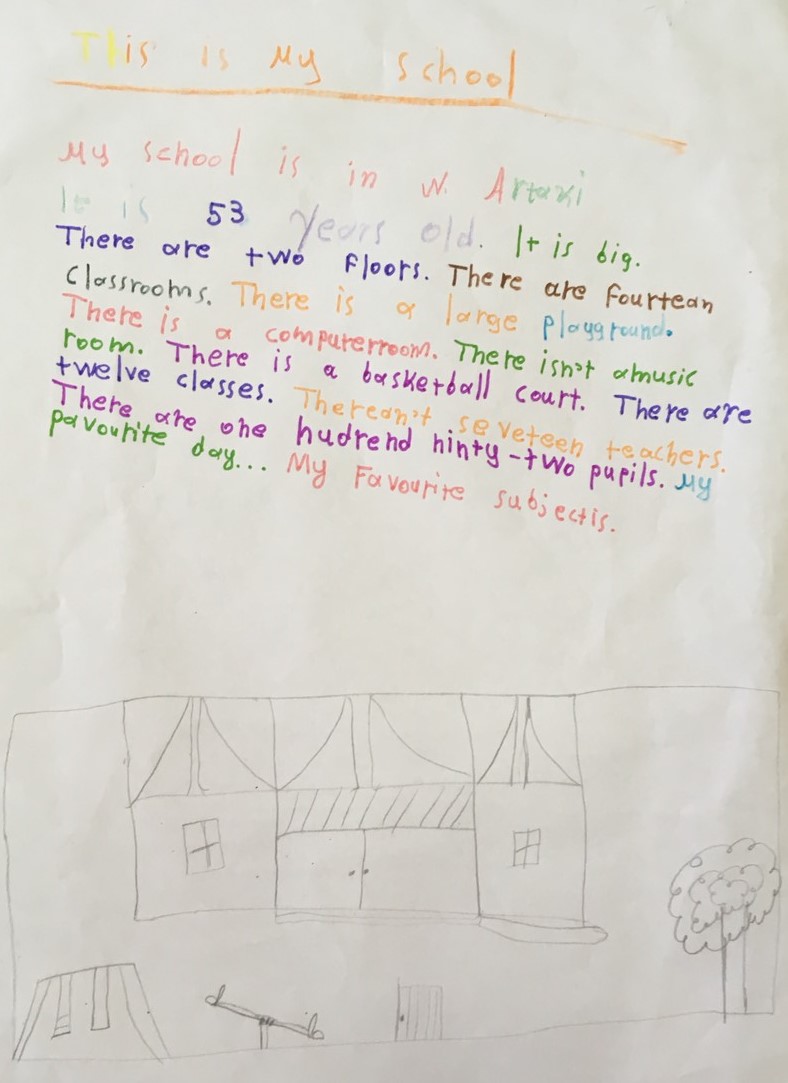 This is My school
My school is in N. Artaki
It is 53 years old. It is big.
There are two floors. There are fourtean
classrooms. There is a large playground.
There is a computerroom. There isn't amusic
room. There is a basketball court. There are
twelve classes. Therearn't seveteen teachers.
There are one hudrend ninty-two pupils. My
pavourite day... My Favourite subjectis.